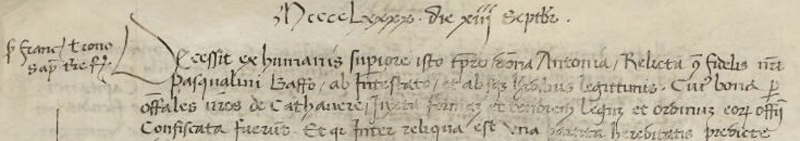 MCCCCLxxxx. die xiiij Septbr.
p Franc/ trono
Decessit ex humanis supiore isto tpre dona Antonia / Relicta q fidelis nri
Pasqualini Baffo, ab Intestato, et absq hedibus legittimis. Cui9 bona p
offales nros de Cathavere, Juxta formaz et tenorem legum et ordinuz eor offij
Confiscata fuerut. Et qr Inter reliqua est una hereditatis predicte